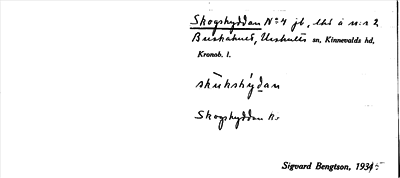 Skogshyddan Nº 4 jb, lht å n:r 2
Buskahult, Urshults sn, Kinnevalds hd,
Kronob. l.
skùkshýdan
Skogshyddan
Sigvard Bengtson, 1934